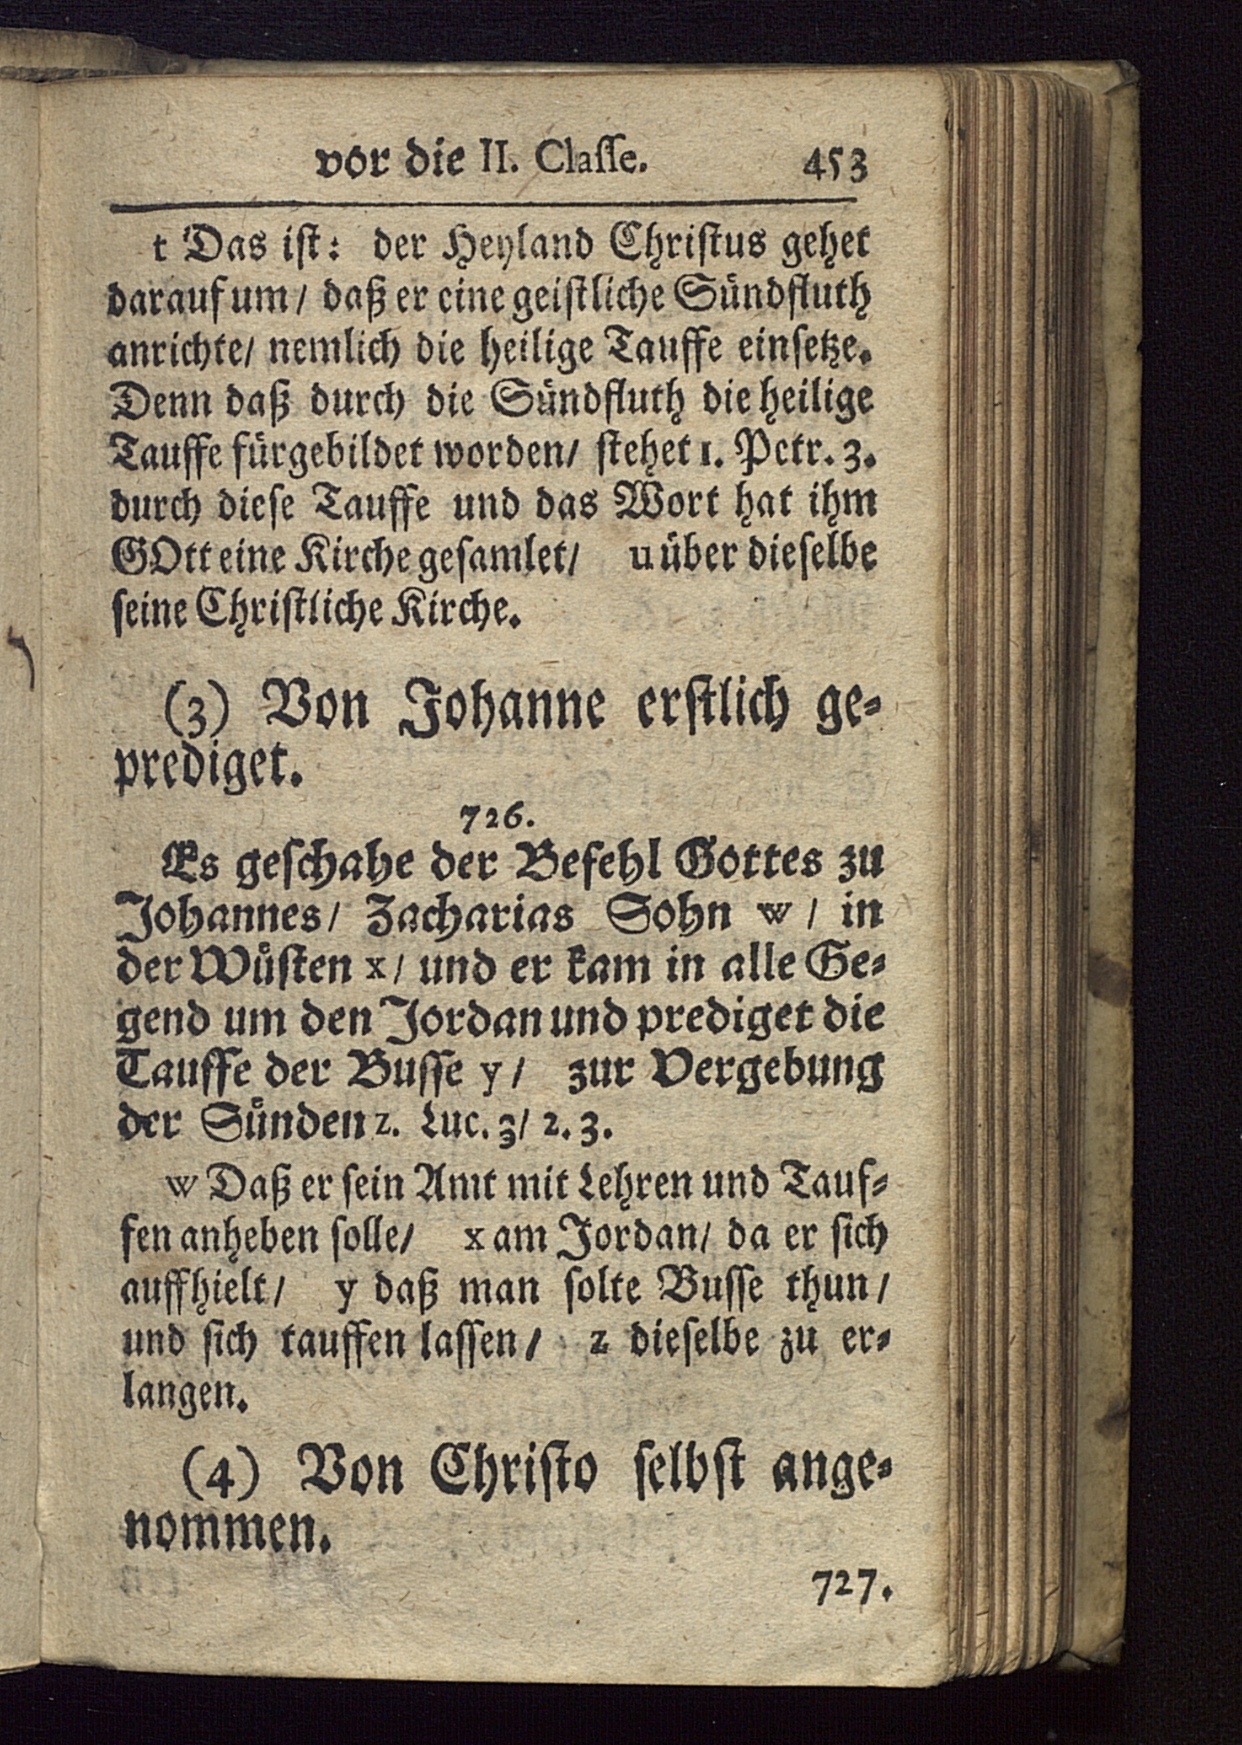 vor die II. Claſſe. 453
t Das iſt: der Heyland Chriſtus gehet
darauf um/ daß er eine geiſtliche Sündfluth
anrichte/ nemlich die heilige Tauffe einſetze.
Denn daß durch die Sündfluth die heilige
Tauffe fürgebildet worden/ ſtehet 1. Petr. 3.
durch dieſe Tauffe und das Wort hat ihm
GOtt eine Kirche geſamlet/ u über dieſelbe
ſeine Chriſtliche Kirche.
(3) Von Johanne erſtlich ge-
prediget.
726.
Es geſchahe der Befehl Gottes zu
Johannes/ Zacharias Sohn w / in
der Wüſten x/ und er kam in alle Ge-
gend um den Jordan und prediget die
Tauffe der Buſſe y / zur Vergebung
der Sünden z. Luc. 3/ 2. 3.
w Daß er ſein Amt mit Lehren und Tauf-
fen anheben ſolle/ x am Jordan/ da er ſich
auffhielt/ y daß man ſolte Buſſe thun/
und ſich tauffen laſſen/ z dieſelbe zu er-
langen.
(4) Von Chriſto ſelbſt ange-
nommen.
727.